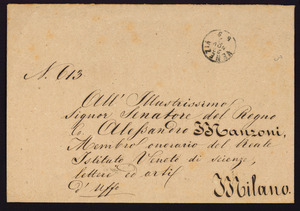 N. 613
All' Illustrissimo
Signor Senatore del Regno
Alessandro Manzoni,
Membro onorario del Reale
Istituto Veneto di scienze,
lettere ed arti
Milano.
d' Uffo